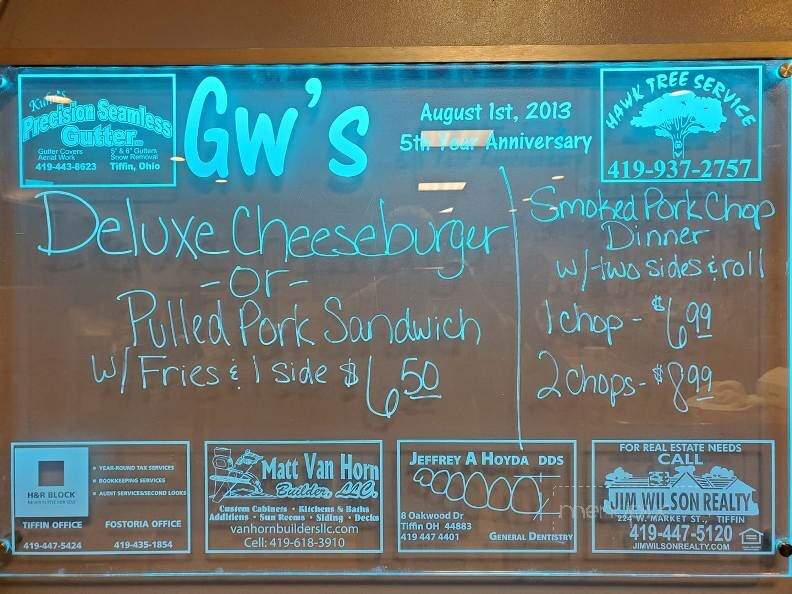 King's
Precision Seamless
Gutter LLC
Gutter Covers 5" & 6" Gutters
Aerial Work Snow Removal
419-443-8623 Tiffin, Ohio
GW's
August 1st, 2013
5th Year Anniversary
HAWK TREE SERVICE
419-937-2757
Deluxe Cheeseburger
-or-
Pulled Pork Sandwich
w/ Fries & 1 side $6.50
Smoked Pork Chop
Dinner
w/ two sides & roll
1 chop - $6.99
2 chops - $8.99
H&R BLOCK
• YEAR-ROUND TAX SERVICES
• BOOKKEEPING SERVICES
• AUDIT SERVICES/SECOND LOOKS
TIFFIN OFFICE FOSTORIA OFFICE
419-447-5424 419-435-1854
Matt Van Horn
Builder, LLC.
Custom Cabinets • Kitchens & Baths
Additions • Sun Rooms • Siding • Decks
vanhornbuildersllc.com
Cell: 419-618-3910
JEFFREY A HOYDA DDS
8 Oakwood Dr
Tiffin OH 44883
419 447 4401 GENERAL DENTISTRY
FOR REAL ESTATE NEEDS
CALL
JIM WILSON REALTY
224 W. MARKET ST., TIFFIN
419-447-5120
JIMWILSONREALTY.COM